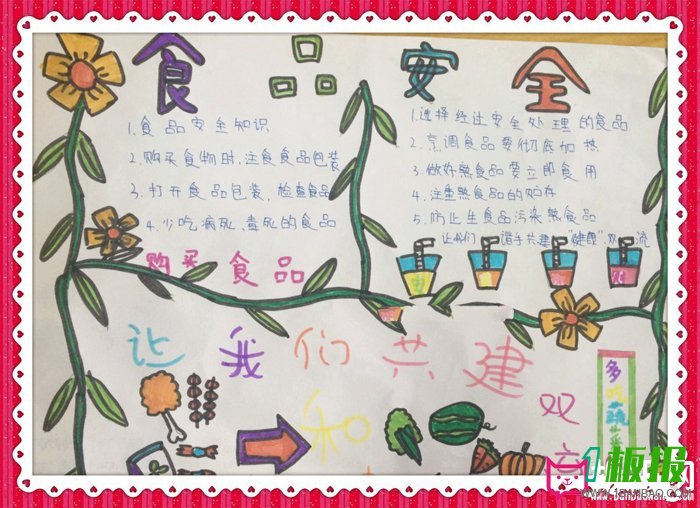 食品安全
1.食品安全知识
2.购买食物时,注食食品包装
3.打开食品包装,检查食品
4.少吃病死、毒死的食品
购买食品
1.选择经过安全处理的食品
2.烹调食品要彻底加热
3.做好熟食品要立即食用
4.注重熟食品的贮存
5.防止生食品污染熟食品
让我们 携手共建
让我们共建
和
双
多吃蔬菜
1板报